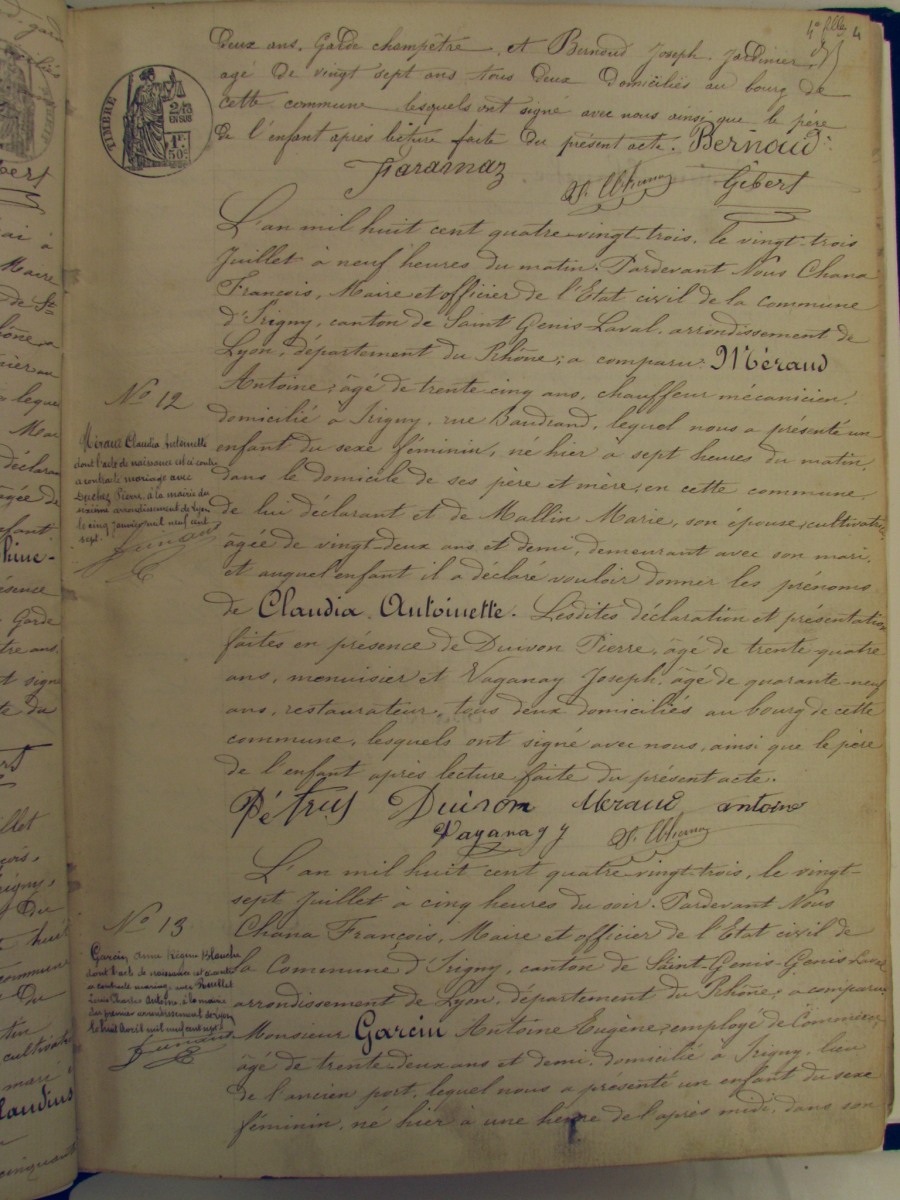 4e fllet 4
TIMBRE
2/10
EN SUS
1F.
50c.
deux ans, Garde champêtre, et Bernoud Joseph, Jardinier,
âgé de vingt sept ans tous deux domiciliés au bourg de
cette commune lesquels ont signé avec nous ainsi que le père
de l'enfant après lecture faite du présent acte. Bernoud
Faramaz
Gebert
L'an mil huit cent quatre-vingt-trois, le vingt-trois
Juillet à neuf heures du matin. Pardevant Nous Chana
François, Maire et officier de l'Etat civil de la commune
d'Irigny, canton de Saint Genis-Laval, arrondissement de
Lyon, département du Rhône; a comparu: Méraud
Antoine; âgé de trente cinq ans, chauffeur mécanicien,
domicilié à Irigny, rue Baudrand, lequel nous a présenté un
enfant du sexe féminin, né hier à sept heures du matin,
dans le domicile de ses père et mère, en cette commune,
de lui déclarant et de Mallin Marie, son épouse, cultivatrice,
âgée de vingt-deux ans et demi, demeurant avec son mari,
et auquel enfant il a déclaré vouloir donner les prénoms
de Claudia Antoinette. Lesdites déclaration et présentation
faites en présence de Duivon Pierre, âgé de trente-quatre
ans, menuisier et Vaganay Joseph, âgé de quarante-neuf
ans, restaurateur, tous deux domiciliés au bourg de cette
commune, lesquels ont signé avec nous, ainsi que le père
de l'enfant après lecture faite du présent acte.
Pétrus Duivon Meraud antoine
Vaganay
No 12
Méraud Claudia Antoinette
dont l'acte de naissance est ci-contre
a contracté mariage avec
Duclos Pierre à la mairie du
arrondissement de Lyon
le cinq janvier mil neuf cent
sept.
L'an mil huit cent quatre-vingt-trois, le vingt-
sept Juillet à cinq heures du soir. Pardevant Nous
Chana François, Maire et officier de l'Etat civil de
la Commune d'Irigny, canton de Saint-Genis-Genis-Laval
arrondissement de Lyon, département du Rhône, a comparu
Monsieur Garcin Antoine Eugène, employé de Commerce,
âgé de trente-deux ans et demi, domicilié à Irigny, lieu
de l'ancien port, lequel nous a présenté un enfant du sexe
féminin, né hier à une heure de l'après midi, dans son
No 13
Garcin Blanche
dont l'acte de naissance est ci-contre
a contracté mariage avec
Louis Charles Antoine à la mairie
du premier arrondissement de Lyon
le huit Avril mil neuf cent sept